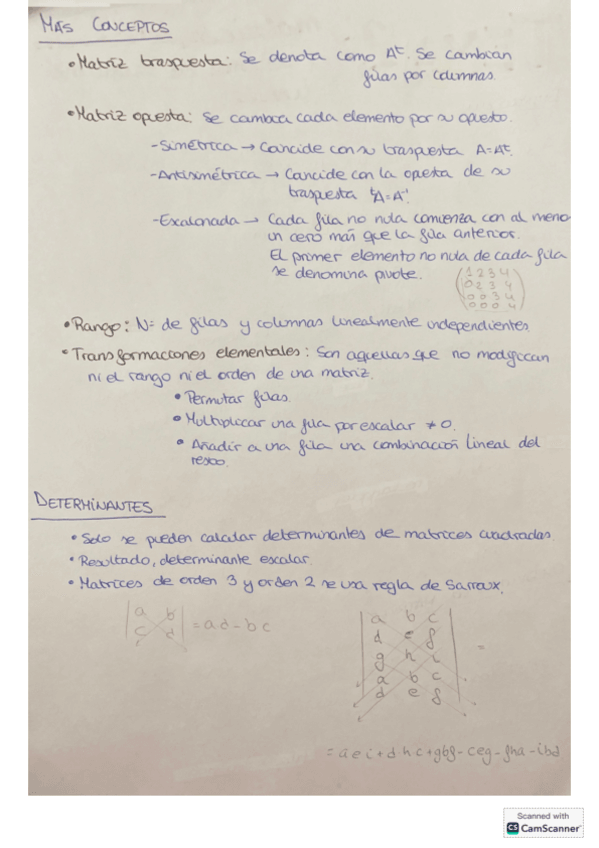 MAS CONCEPTOS
• Matriz traspuesta: Se denota como Aᵗ. Se cambian
filas por columnas.
• Matriz opuesta: Se cambia cada elemento por su opuesto.
- Simétrica → Concide con su traspuesta A=Aᵗ.
- Antisimétrica → Concide con la opesta de su
traspuesta
- Escalonada → Cada fila no nula comienza con al meno
un cero más que la fila anterior.
El primer elemento no nula de cada fila
se denomina pivote.
1 2 3 4
0 2 3 4
0 0 3 4
0 0 0 4
• Rango: Nº de filas y columnas linealmente independientes.
• Transformaciones elementales: Son aquellas que no modifican
ni el rango ni el orden de una matriz.
• Permutar filas.
• Multiplicar una fila por escalar ≠ 0.
• Añadir a una fila una combinación lineal del
resto.
DETERMINANTES
• Solo se pueden calcular determinantes de matrices cuadradas
• Resultado, determinante escalar.
• Matrices de orden 3 y orden 2 se usa regla de Sarrux.
a b
c d = ad - bc
a b c
d e f
g h i =
a b c
d e f
= aei + dhc + gbf - ceg - fha - ibd
Scanned with
CS CamScanner